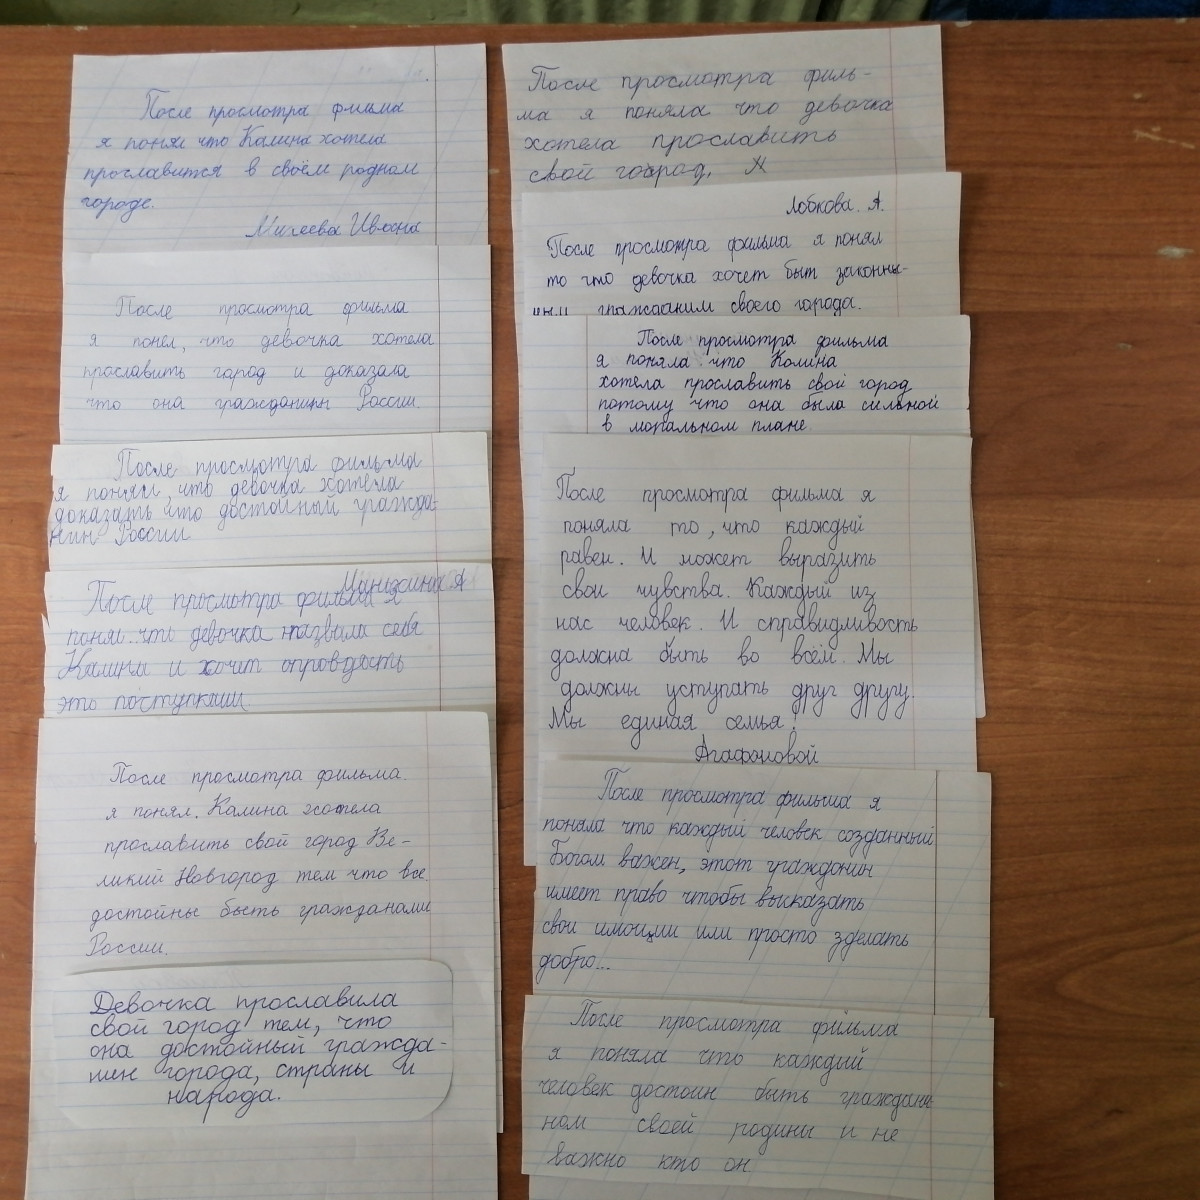 После просмотра фильма
я понял что Калина хотела
прославится в своём родном
городе.
Михеева Ивосна
После просмотра фильма
я понел, что девочка хотела
прославить город и доказала
что она гражданин России.
После просмотра фильма
я понял, что девочка хотела
доказать что достойный гражда-
нин России
После просмотра фильма я
понял что девочка назвала себя
и хочит
это поступками
После просмотра фильма.
я понял. Калина хотела
прославить свой город Ве-
ликий Новгород тем что все
достойны бысть гражданами
России.
Девочка прославила
свой город тем, что
она достойный гражда-
нин города, страны и
народа.
После просмотра филь-
ма я поняла что девочка
хотела прославить
свой город.
Лобкова. А.
После просмотра фильма я понял
то что девочка хочет быт законны-
своего города.
После просмотра фильма
я поняла что Колина
хотела прославить свой город
потому что она была сильной
в моральном плане.
После просмотра фильма я
поняла то, что каждый
равен. И может выразить
свои чувства. Каждый из
нас человек. И справидливость
должна быть во всём. Мы
должны уступать друг другу.
Мы единая семья!
Агафоновой
После просмотра фильма я
поняла что каждый человек созданный
Богом важен, этот граждонин
имеет право чтобы высказать
свои имоции или просто зделать
добро...
После просмотра фильма
я поняла что каждий
человек достоин быть граждани
ном своей родины и не
важно кто он